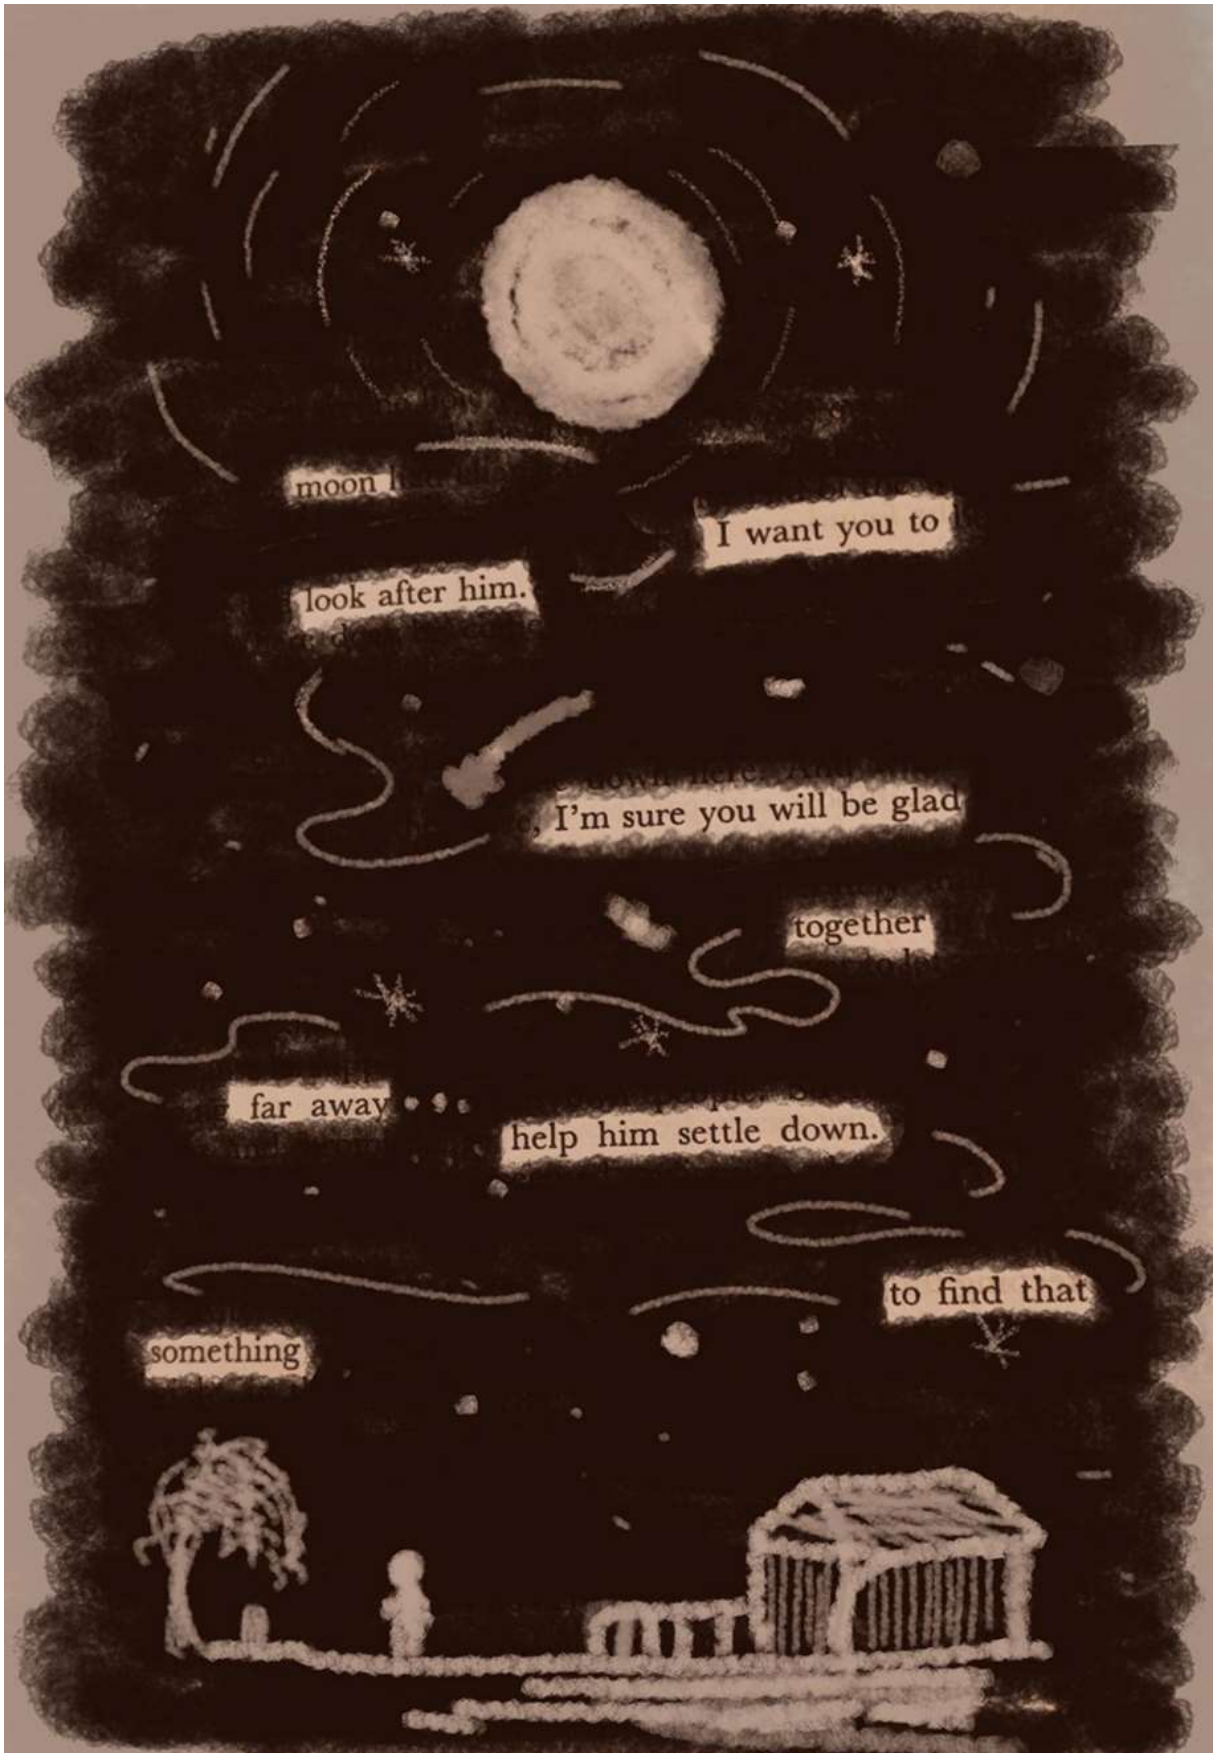 moon
I want you to
look after him.
down here.
, I'm sure you will be glad
together
far away
people.
help him settle down.
to find that
something